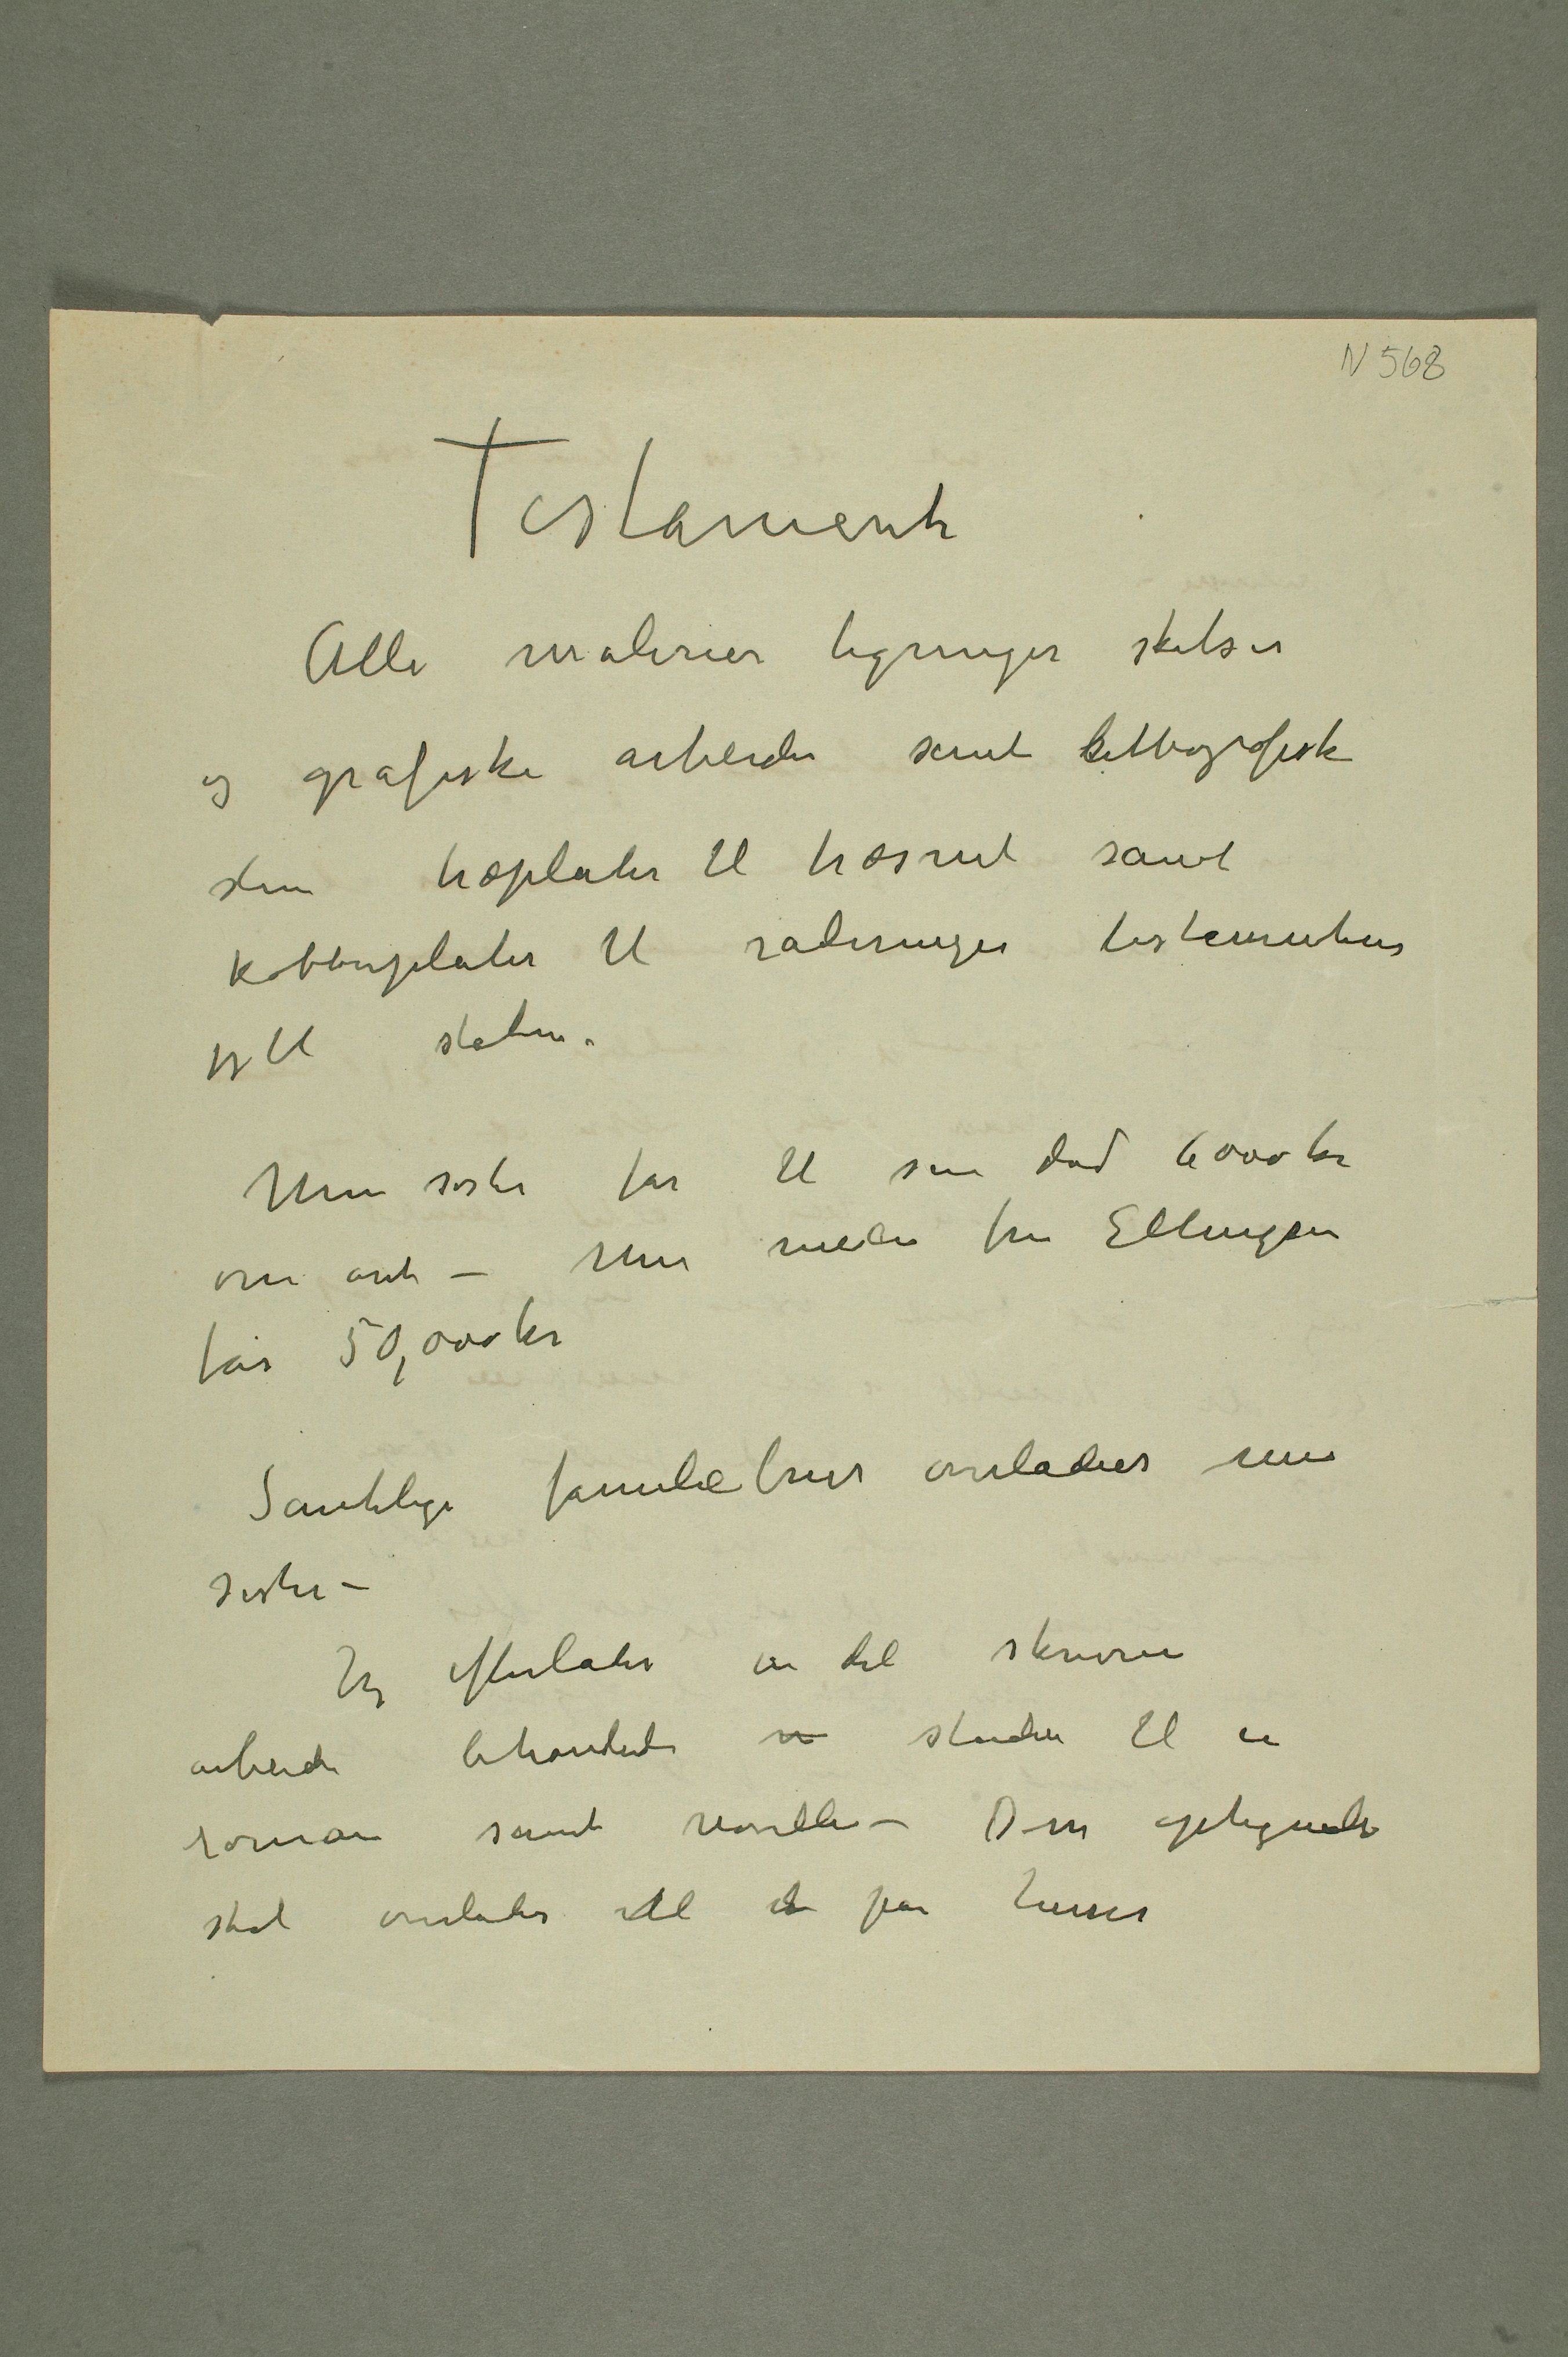 N 568
Testament
Alle malerier tegninger skitser
og grafiske arbeider samt lithografiske
sten træplater til træsnit samt
kobberplater til raderinger testamenterer
jeg til staten.
Min søster får til sin død 6000 kr
om året – Min niece fru Ellingsen
får 50,000 kr
Samtlige familiebrever overlades min
søster –
Jeg efterlater en del skrevne
arbeider behandlede studier til en
roman samt noveller – Disse optegnelser
skal overlates til et par kunst